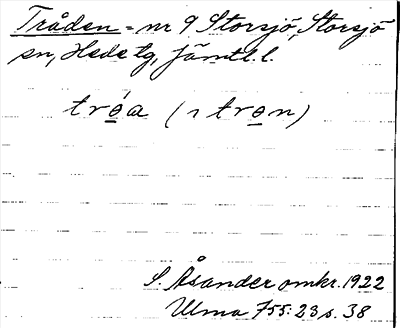 Tråden = nr 9 Storsjö, Storsjö
sn, Hede tg, Jämtl. l.
tró̱a (ɿ tro̱n)
S. Åsander omkr. 1922
Ulma 755:23 s. 38